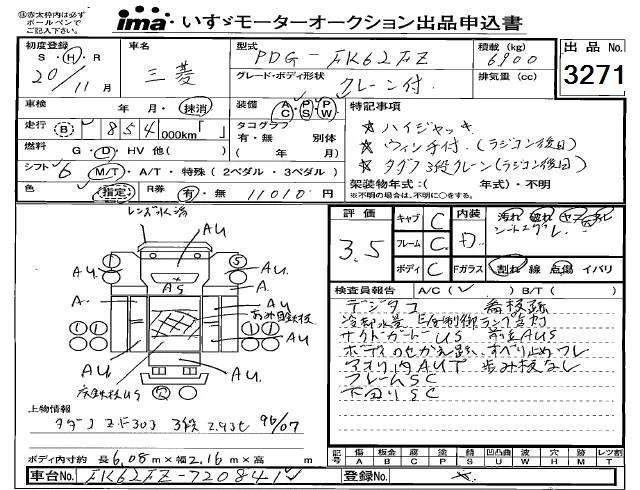 ※赤太枠内は必ず
ボールペンで
ご記入下さい。
ima いすゞモーターオークション出品申込書
初度登録
S・H・R
20/11月
車名
三菱
型式
PDG-FK62FZ
グレード・ボディ形状
クレーン付.
積載 (kg)
6900
排気量 (cc)
出品No.
3271
車検 年 月・抹消
走行 B 854 000km「 」
燃料 G・D・HV 他( )
シフト 6 M/T・A/T・特殊(2ペダル・3ペダル)
色 指定 R券 有・無 11010円
装備 AC PS PW
タコグラフ
有・無 別体
( 年 月)
特記事項
☆ ハイジャッキ
☆ ウィンチ付.(ラジコン後日)
☆ タダノ3段クレーン(ラジコン後日)
架装物年式:( 年式)・不明
※不明の場合は、不明に○をする。
評価
3.5
キャブ C
フレーム C
ボディ C
内装 D.
汚れ 破れ
Fガラス 割れ 線 点傷 イバリ
検査員報告 A/C(✓) B/T( )
デジタコ
冷却水差 左右制御ランプ点灯
サイドガードUS 前左AUS
ボディのせかえ跡、すべり止めフレ
アオリ内AUT 歩み板なし
フレームSC
下回りSC
レンズ水滴
AU
AU. AU.
AS
A. A
AU
あゆ目鉄板
AU. AU.
AU. AU
床鉄板US
上物情報
タダノ ZF303 3段 2.93t 96/07
ボディ内寸約 長 6.08m×幅 2.16m×高 m
車台No. FK62FZ-720841
登録No.
記号 傷 板金 腐 塗 錆 凹凸曲 波 穴 跡 レツ割
A B C P S U W H M T